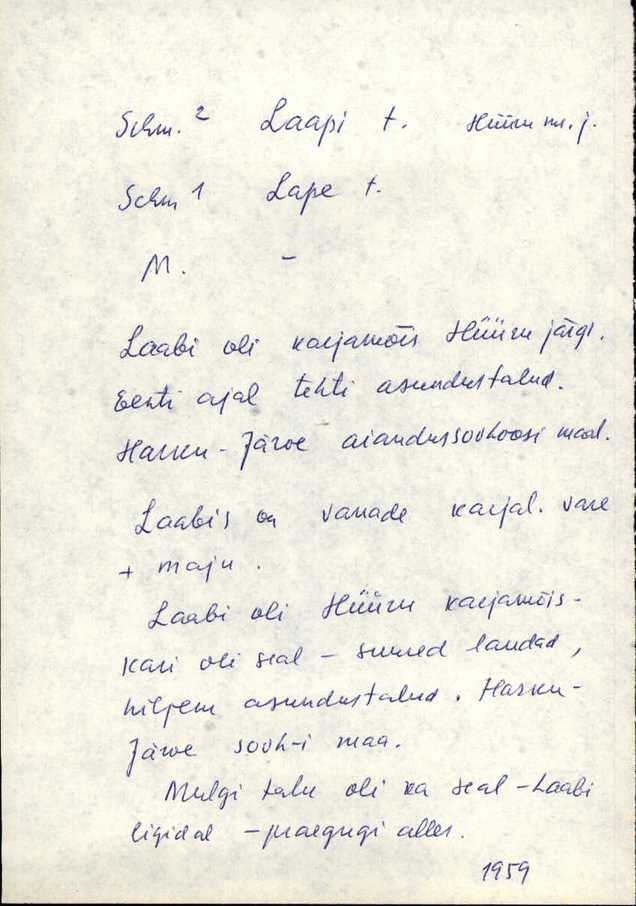 Schm. 2 Laapi t. Hüüru m. j.
Schm 1 Lape t.
M. –
Laabi oli karjamõis Hüüru järgi.
Eesti ajal tehti asundustalud.
Harku-Järve aiandussovhoosi maal.
Laabis on vanade karjal. vare
+ maju.
Laabi oli Hüüru karjamõis-
kari oli seal – suured laudad,
hiljem asundustalud. Harku-
Järve sovh-i maa.
Mulgi talu oli ka seal – Laabi
ligidal – praegugi alles.
1959